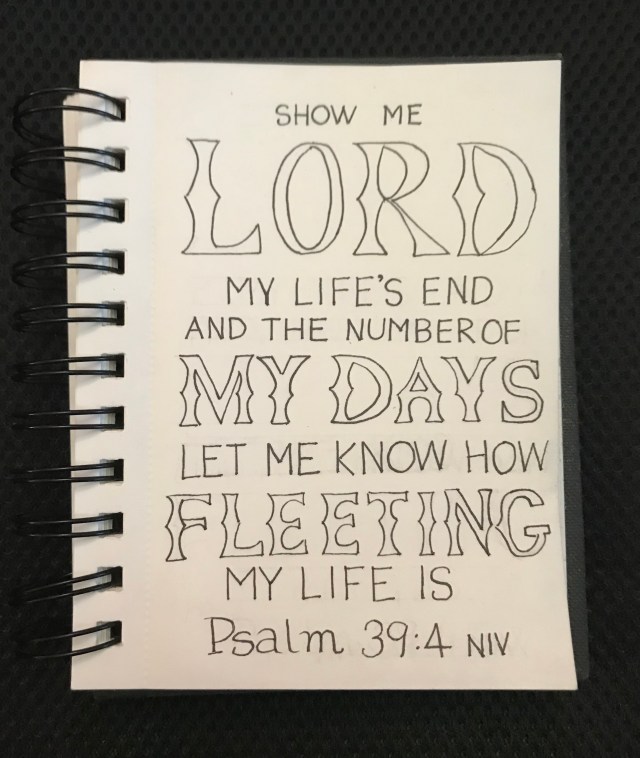 SHOW ME
LORD
MY LIFE'S END
AND THE NUMBER OF
MY DAYS
LET ME KNOW HOW
FLEETING
MY LIFE IS
Psalm 39:4 NIV